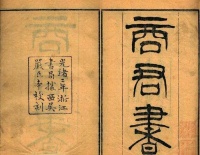 商君書
光緒二年浙江
書局據西吳
嚴氏本校刻